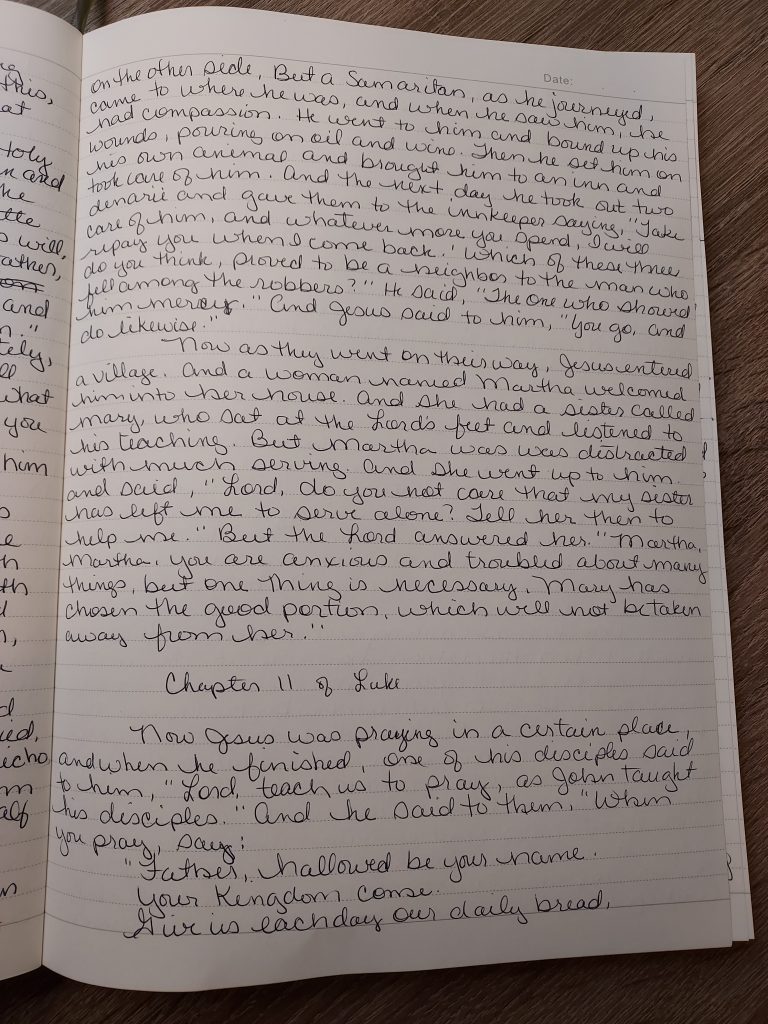 ng
this,
at
Holy
n and
he
tte
s will,
Father,
and
n."
tely,
ll
what
you
him
o
e
h
th
d
n,
d
ied,
icho
m
alf
n
Date:
on the other side, But a Samaritan, as he journeyed,
came to where he was, and when he saw him, he
had compassion. He went to him and bound up his
wounds, pouring on oil and wine. Then he set him on
his own animal and brought him to an inn and
took care of him. And the next day he took out two
denarii and gave them to the innkeeper saying, "Take
care of him, and whatever more you spend, I will
repay you when I come back.' Which of these three
do you think, proved to be a neighbor to the man who
fell among the robbers?" He said, "The one who showed
him mercy." And Jesus said to him, "You go, and
do likewise."
Now as they went on their way, Jesus entered
a village. And a woman named Martha welcomed
him into her house. And she had a sister called
Mary, who sat at the Lord's feet and listened to
his teaching. But Martha was was distracted
with much serving. And she went up to him
and said, "Lord, do you not care that my sister
has left me to serve alone? Tell her then to
help me." But the Lord answered her. "Martha,
Martha, you are anxious and troubled about many
things, but one thing is necessary. Mary has
chosen the good portion, which will not be taken
away from her."
Chapter 11 of Luke
Now Jesus was praying in a certain place,
and when he finished, one of his disciples said
to him, "Lord, teach us to pray, as John taught
his disciples." And he said to them, "When
you pray, say:
"Father, hallowed be your name.
Your Kingdom come.
Give us each day our daily bread,